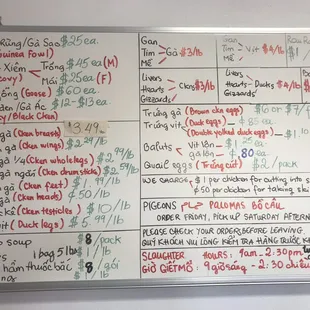 Rừng/Gà Sao $25ea
(Guinea Fowl)
Xiêm Trống $45ea (M)
Mái $25ea (F)
Ngỗng (Goose) $60ea
Gà Ác $12-$13ea
Black Chen)
$3.49
(Cken breast)
(Cken wings) $2.29/lb
(1/4 Cken whole legs) $2/lb
(Cken drum sticks) $2.59/lb
(Cken feet) $1.99/lb
(Cken heads) $.50/lb
(Cken testicles) $10/lb
(Duck legs) $5.99/lb
soup $8/pack
bag 5 lbs
hầm thuốc bắc $8/gói
Gan
Tim Gà $3/lb
Mề
Livers
Hearts Ckns $3/lb
Gizzards
Gan
Tim Vịt $4/lb
Mề
Livers
Hearts Ducks $4/lb
Gizzards
$1
Trứng gà (Brown cken eggs)
Trứng vịt (Duck eggs) $.85 ea
(Double yolked duck eggs) $1 ea
Baluts Vịt lộn
gà lộn $.80 ea
Quail eggs (Trứng cút) $2/pack
WE CHARGE $1 per chicken for cutting into
$.50 per chicken for taking
PIGEONS PALOMAS BỒ CÂU
ORDER FRIDAY, PICK UP SATURDAY
PLEASE CHECK YOUR ORDERS BEFORE LEAVING
QUÝ KHÁCH VUI LÒNG KIỂM TRA HÀNG TRƯỚC
SLAUGHTER HOURS: 9am-2:30pm
GIỜ GIẾT MỔ: 9 giờ sáng - 2:30 chiều